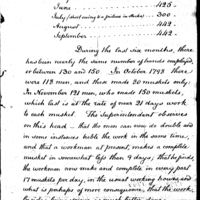 June 425.
July (short owing to a failure in Stocks) 300.
August 442.
September 442.
During the last six months, there
has been nearly the same number of hands employed,
or between 130 and 150. In October 1798 there
were 113 men, and these made 20 muskets only.
In November 121 men, who made 150 muskets,
which last is at the rate of near 21 days work
to each musket. The Superintendant observes
on this head - that the men can now do double and
in some instances treble the work in the same time;
and that a workman at present, makes a complete
musket in somewhat less than 9 days; that besides
the workmen now make and complete in every part
17 muskets per day, in the usual working hours; and
what is perhaps of more consequence, that the work,